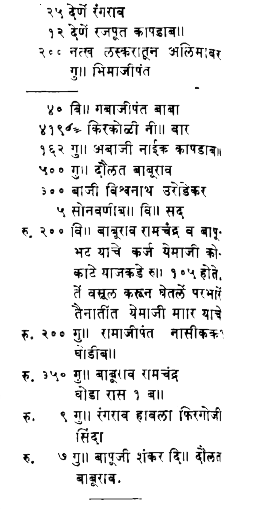 २५ देणें रंगराव
१२ देणें रजपूत कापडाब॥
२०० नत्ख लस्करातून अलिमाबर
गु॥ भिमाजीपंत
४० बि॥ गबाजीपंत बाबा
किरकोळी नी॥ बार
१६२ गु॥ अबाजी नाईक कापडाब॥
५०० गु॥ दौलत बाबूराव
३०० बाजी विश्वनाथ उरोडेकर
५ सोनवणीब॥ वि॥ सद
रु. २०० वि॥ बाबूराव रामचंद्र व बापू-
भट याचे कर्ज येमाजी को-
काटे याजकडे रु॥ १०५ होते.
तें वसूल करून घेतलें परभारें
तैनातींत येमाजी मार याचे
रु. २०० गु॥ रामाजीपंत नासीककर
घोडीब॥
रु. ३५० गु॥ बाबूराव रामचंद्र
घोडा रास १ ब॥
रु. ९ गु॥ रंगराव हाबला फिरगोजी
सिंदा
रु. ७ गु॥ बापूजी शंकर दि॥ दौलत
बाबूराव.